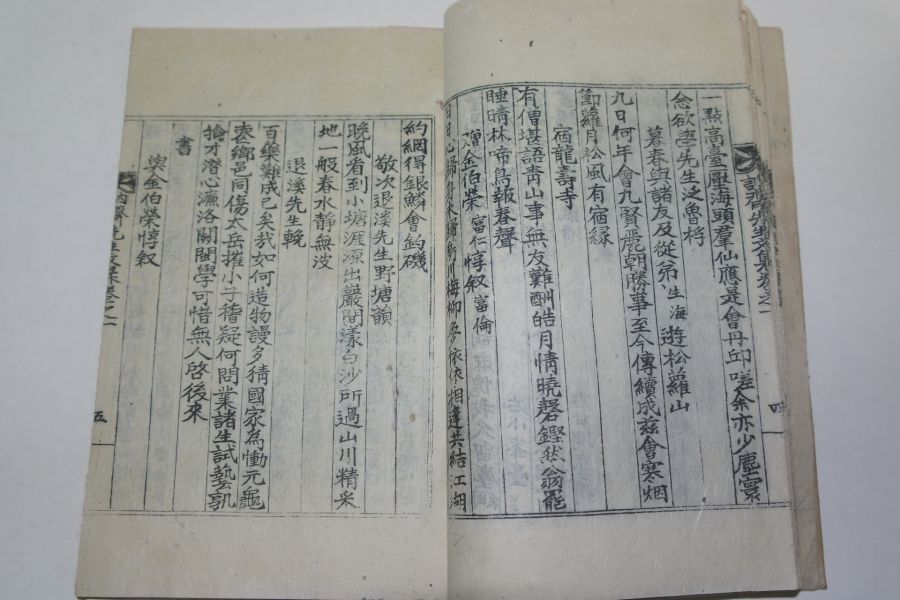 一點高臺壓海頭羣仙應是會丹邱嗟余亦少塵寰
念欲學先生乏魯桮
暮春與諸友及從弟生海遊松蘿山
九日何年會九賢麗朝勝事至今傳續成茲會寒烟
節蘿月松風有宿縁
宿龍壽寺
有僧堪語青山事無友難酬皓月情曉磬鏗然翁罷
睡晴林啼鳥報春聲
贈金伯榮富仁惇叙富倫
心歸烏川梅柳夢依依相逢共結江湖
約網得銀鱗會釣磯
敬次退溪先生野塘韻
晩風看到小塘涯源出巖間漾白沙所過山川精采
地一般春水静無波
退溪先生輓
百樂難成已矣哉如何造物謾多猜國家為慟元龜
喪鄉邑同傷太岳摧小子稽疑何問業諸生試藝孰
掄才潛心濂洛關閩學可惜無人啓後來
書
與金伯榮惇叙
五